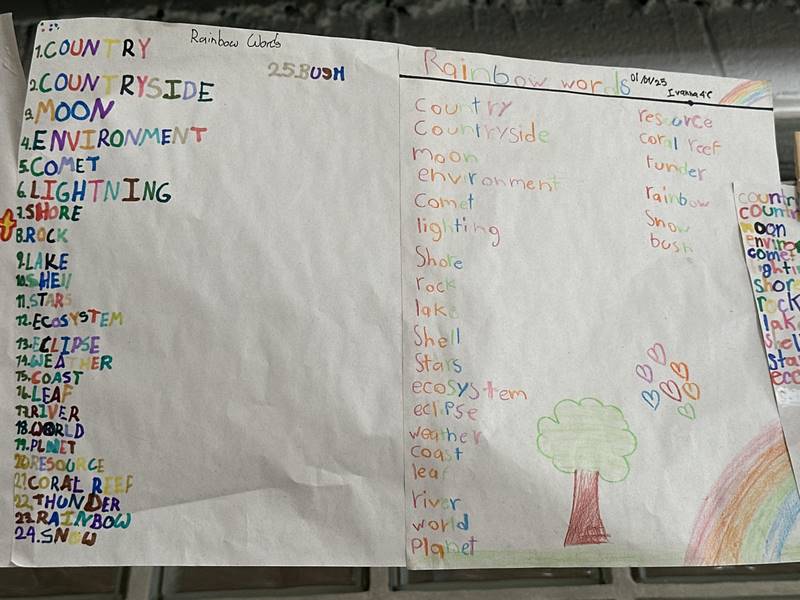 Rainbow Words
1.COUNTRY
2.COUNTRYSIDE
3.MOON
4.ENVIRONMENT
5.COMET
6.LIGHTNING
7.SHORE
8.ROCK
9.LAKE
10.SHEll
11.STARS
12.ECOSYSTEM
13.ECLIPSE
14.WEATHER
15.COAST
16.LEAF
17.RIVER
18.WORLD
19.PLNET
20.RESOURCE
21.CORAL REEF
22.THUNDER
23.RAINBOW
24.SNOW
25.BUSH
Rainbow words
Ivanna 4°C
Country
Countryside
moon
environment
Comet
lighting
Shore
rock
lake
Shell
Stars
ecosystem
eclipse
weather
coast
leaf
river
world
Planet
resource
coral reef
tunder
rainbow
Snow
bush
countr
countr
moon
enviro
comet
ighti
shor
rock
lak
shel
sta
eco